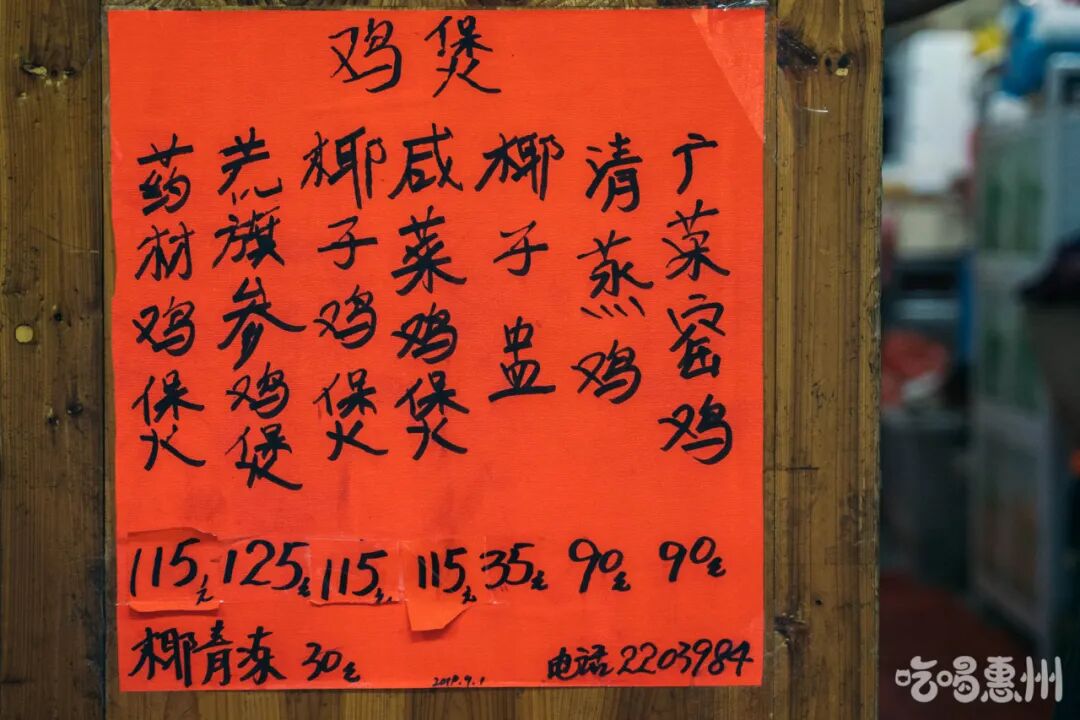 鸡煲
药材鸡煲
旗参鸡煲
椰子鸡煲
咸菜鸡煲
椰子盅
清蒸鸡
广菜窑鸡
115元 125元 115元 115元 35元 90元 90元
椰青冻 30元
电话2203984
吃喝惠州